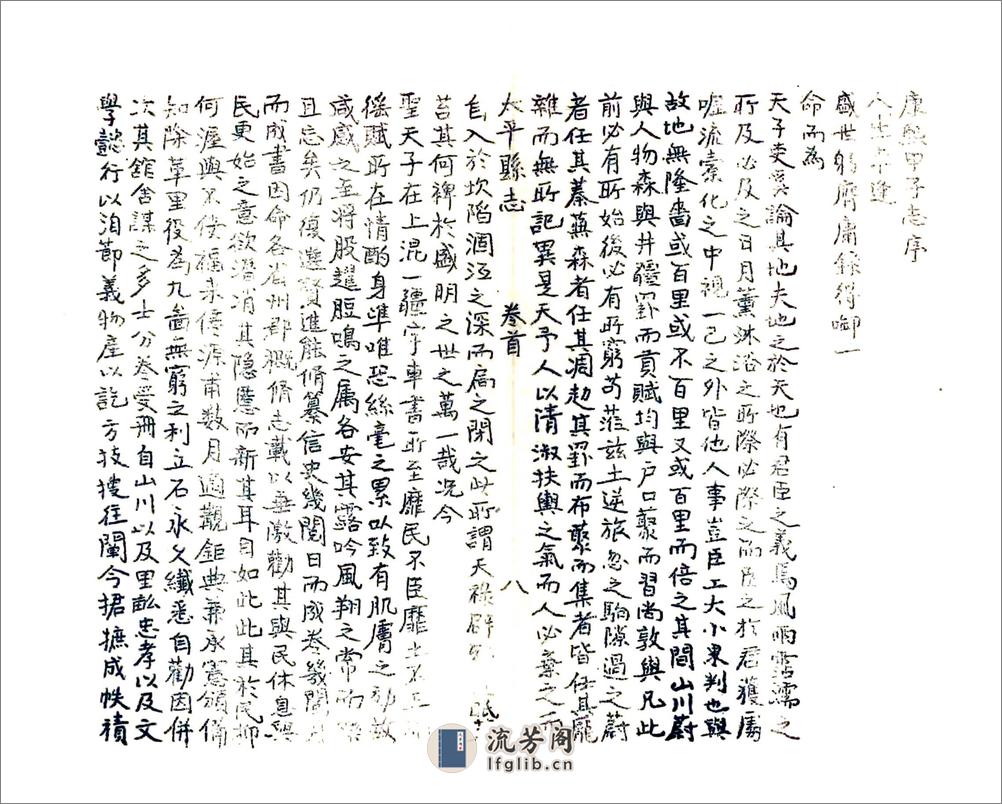 康熙甲子志序
盛世躬膺庸錄得啣一
命而為
天子吏爰論其地夫地之於天也有君臣之義焉風雨霑濡之
所及必及之日月薰沐浴之所際必際之而臣之於君獲屬
嘘流索化之中視一己之外皆他人事豈臣工大小果判也與
故地無隆嗇或百里或不百里又或百里而倍之其間山川蔚
與人物森與井疆罫而貢賦均與戶口聚而習尚敦與凡此
前必有所始後必有所窮苟蒞茲土逆旅忽之駒隙過之蔚
者任其蓁蕪森者任其凋勀其罫而布聚而集者皆任其龐
雜而無所記異是天予人以清淑扶輿之氣而人必棄之而
太平縣志 卷首 八
自入於坎陷涸沍之深而扃之閉之此所謂天祿辟
苔其何裨於盛明之世之萬一哉況今
聖天子在上混一疆宇車書所至靡民不臣靡土不
徭賦所在情酌身準唯恐絲毫之累以致有肌膚之
咸感之至將股躍脰鳴之屬各安其露吟風翔之常而
且忘矣仍復選賢進能脩纂信史幾閱日而成卷幾閱月
而成書因命各省州郡概脩志載以垂激勸其與民休息與
民更始之意欲潛消其隱慝而新其耳目如此此其於民抑
何渥與不佞福來倦源甫數月適觀鉅典兼承憲頒備
知除革里役為九啚無窮之利立石永久纖悉自勸因併
次其館舍謀之多士分卷受冊自山川以及里畝忠孝以及文
學懿行以洎節義物產以訖方技搜往闡今捃摭成帙積
流芳阁
lfglib.cn